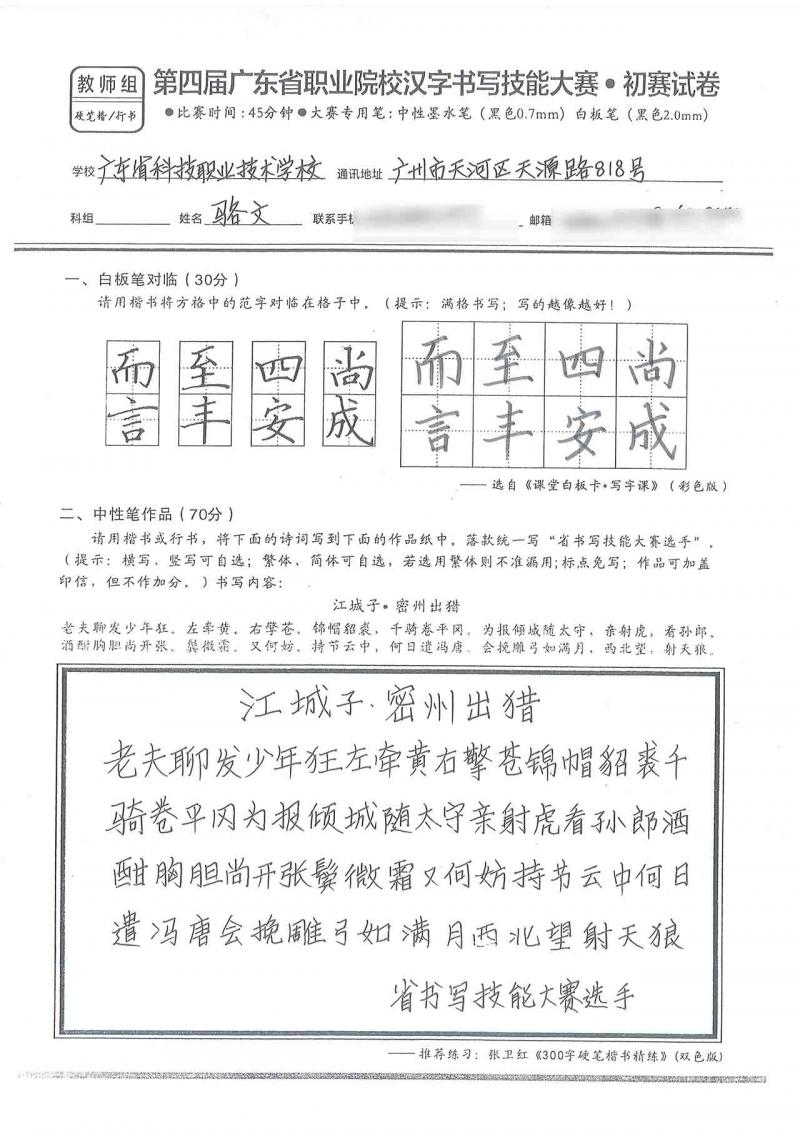 教师组
硬笔楷/行书
第四届广东省职业院校汉字书写技能大赛·初赛试卷
●比赛时间:45分钟●大赛专用笔:中性墨水笔（黑色0.7mm）白板笔（黑色2.0mm）
学校 广东省科技职业技术学校 通讯地址 广州市天河区天源路818号
科组 姓名 骆文 联系手机 邮箱
一、白板笔对临（30分）
请用楷书将方格中的范字对临在格子中。（提示：满格书写；写的越像越好！）
而 至 四 尚 而 至 四 尚
言 丰 安 成 言 丰 安 成
—— 选自《课堂白板卡•写字课》（彩色版）
二、中性笔作品（70分）
请用楷书或行书，将下面的诗词写到下面的作品纸中。落款统一写“省书写技能大赛选手”。
（提示：横写、竖写可自选；繁体、简体可自选，若选用繁体则不准漏用;标点免写；作品可加盖
印信，但不作加分。）书写内容：
江城子•密州出猎
老夫聊发少年狂。左牵黄。右擎苍。锦帽貂裘，千骑卷平冈。为报倾城随太守，亲射虎，看孙郎。
酒酣胸胆尚开张。鬓微霜。又何妨。持节云中，何日遣冯唐。会挽雕弓如满月，西北望，射天狼。
江城子·密州出猎
老夫聊发少年狂左牵黄右擎苍锦帽貂裘千
骑卷平冈为报倾城随太守亲射虎看孙郎酒
酣胸胆尚开张鬓微霜又何妨持节云中何日
遣冯唐会挽雕弓如满月西北望射天狼
省书写技能大赛选手
—— 推荐练习：张卫红《300字硬笔楷书精练》(双色版)